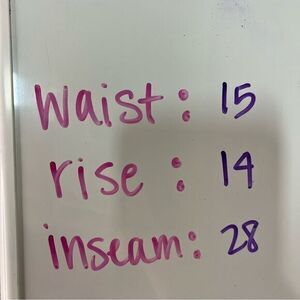 Waist: 15
rise: 14
inseam: 28